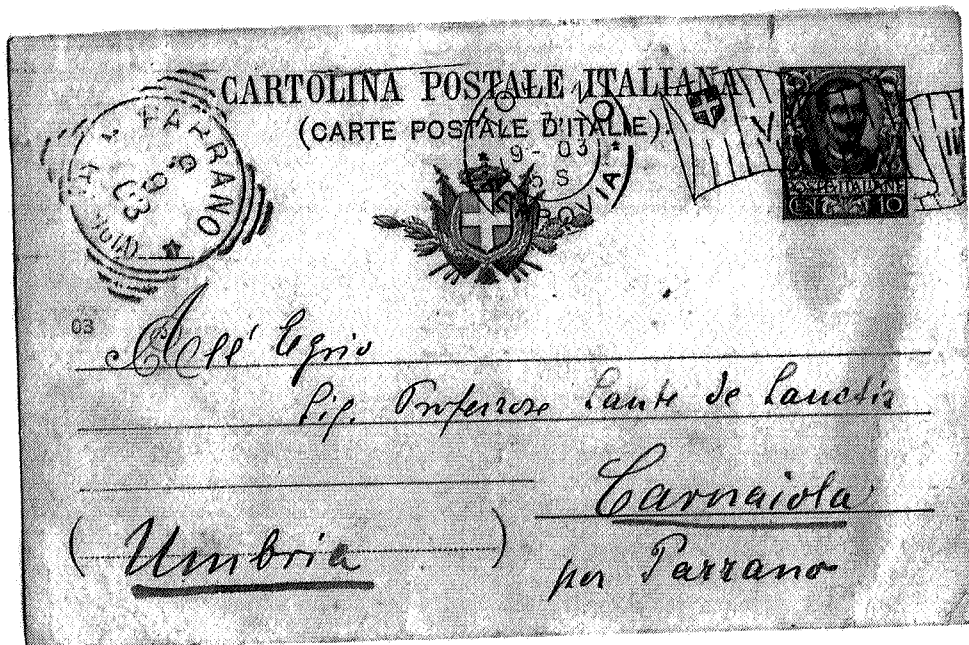 CARTOLINA POSTALE ITALIANA
(CARTE POSTALE D'ITALIE).
PARRANO
9
03
9 - 03
5 S
FERROVIA
POSTE·ITALIANE
CENT 10
03
All' Egrio
Sig. Professore Sante de Sanctis
Carnaiola
(Umbria)
per Parrano